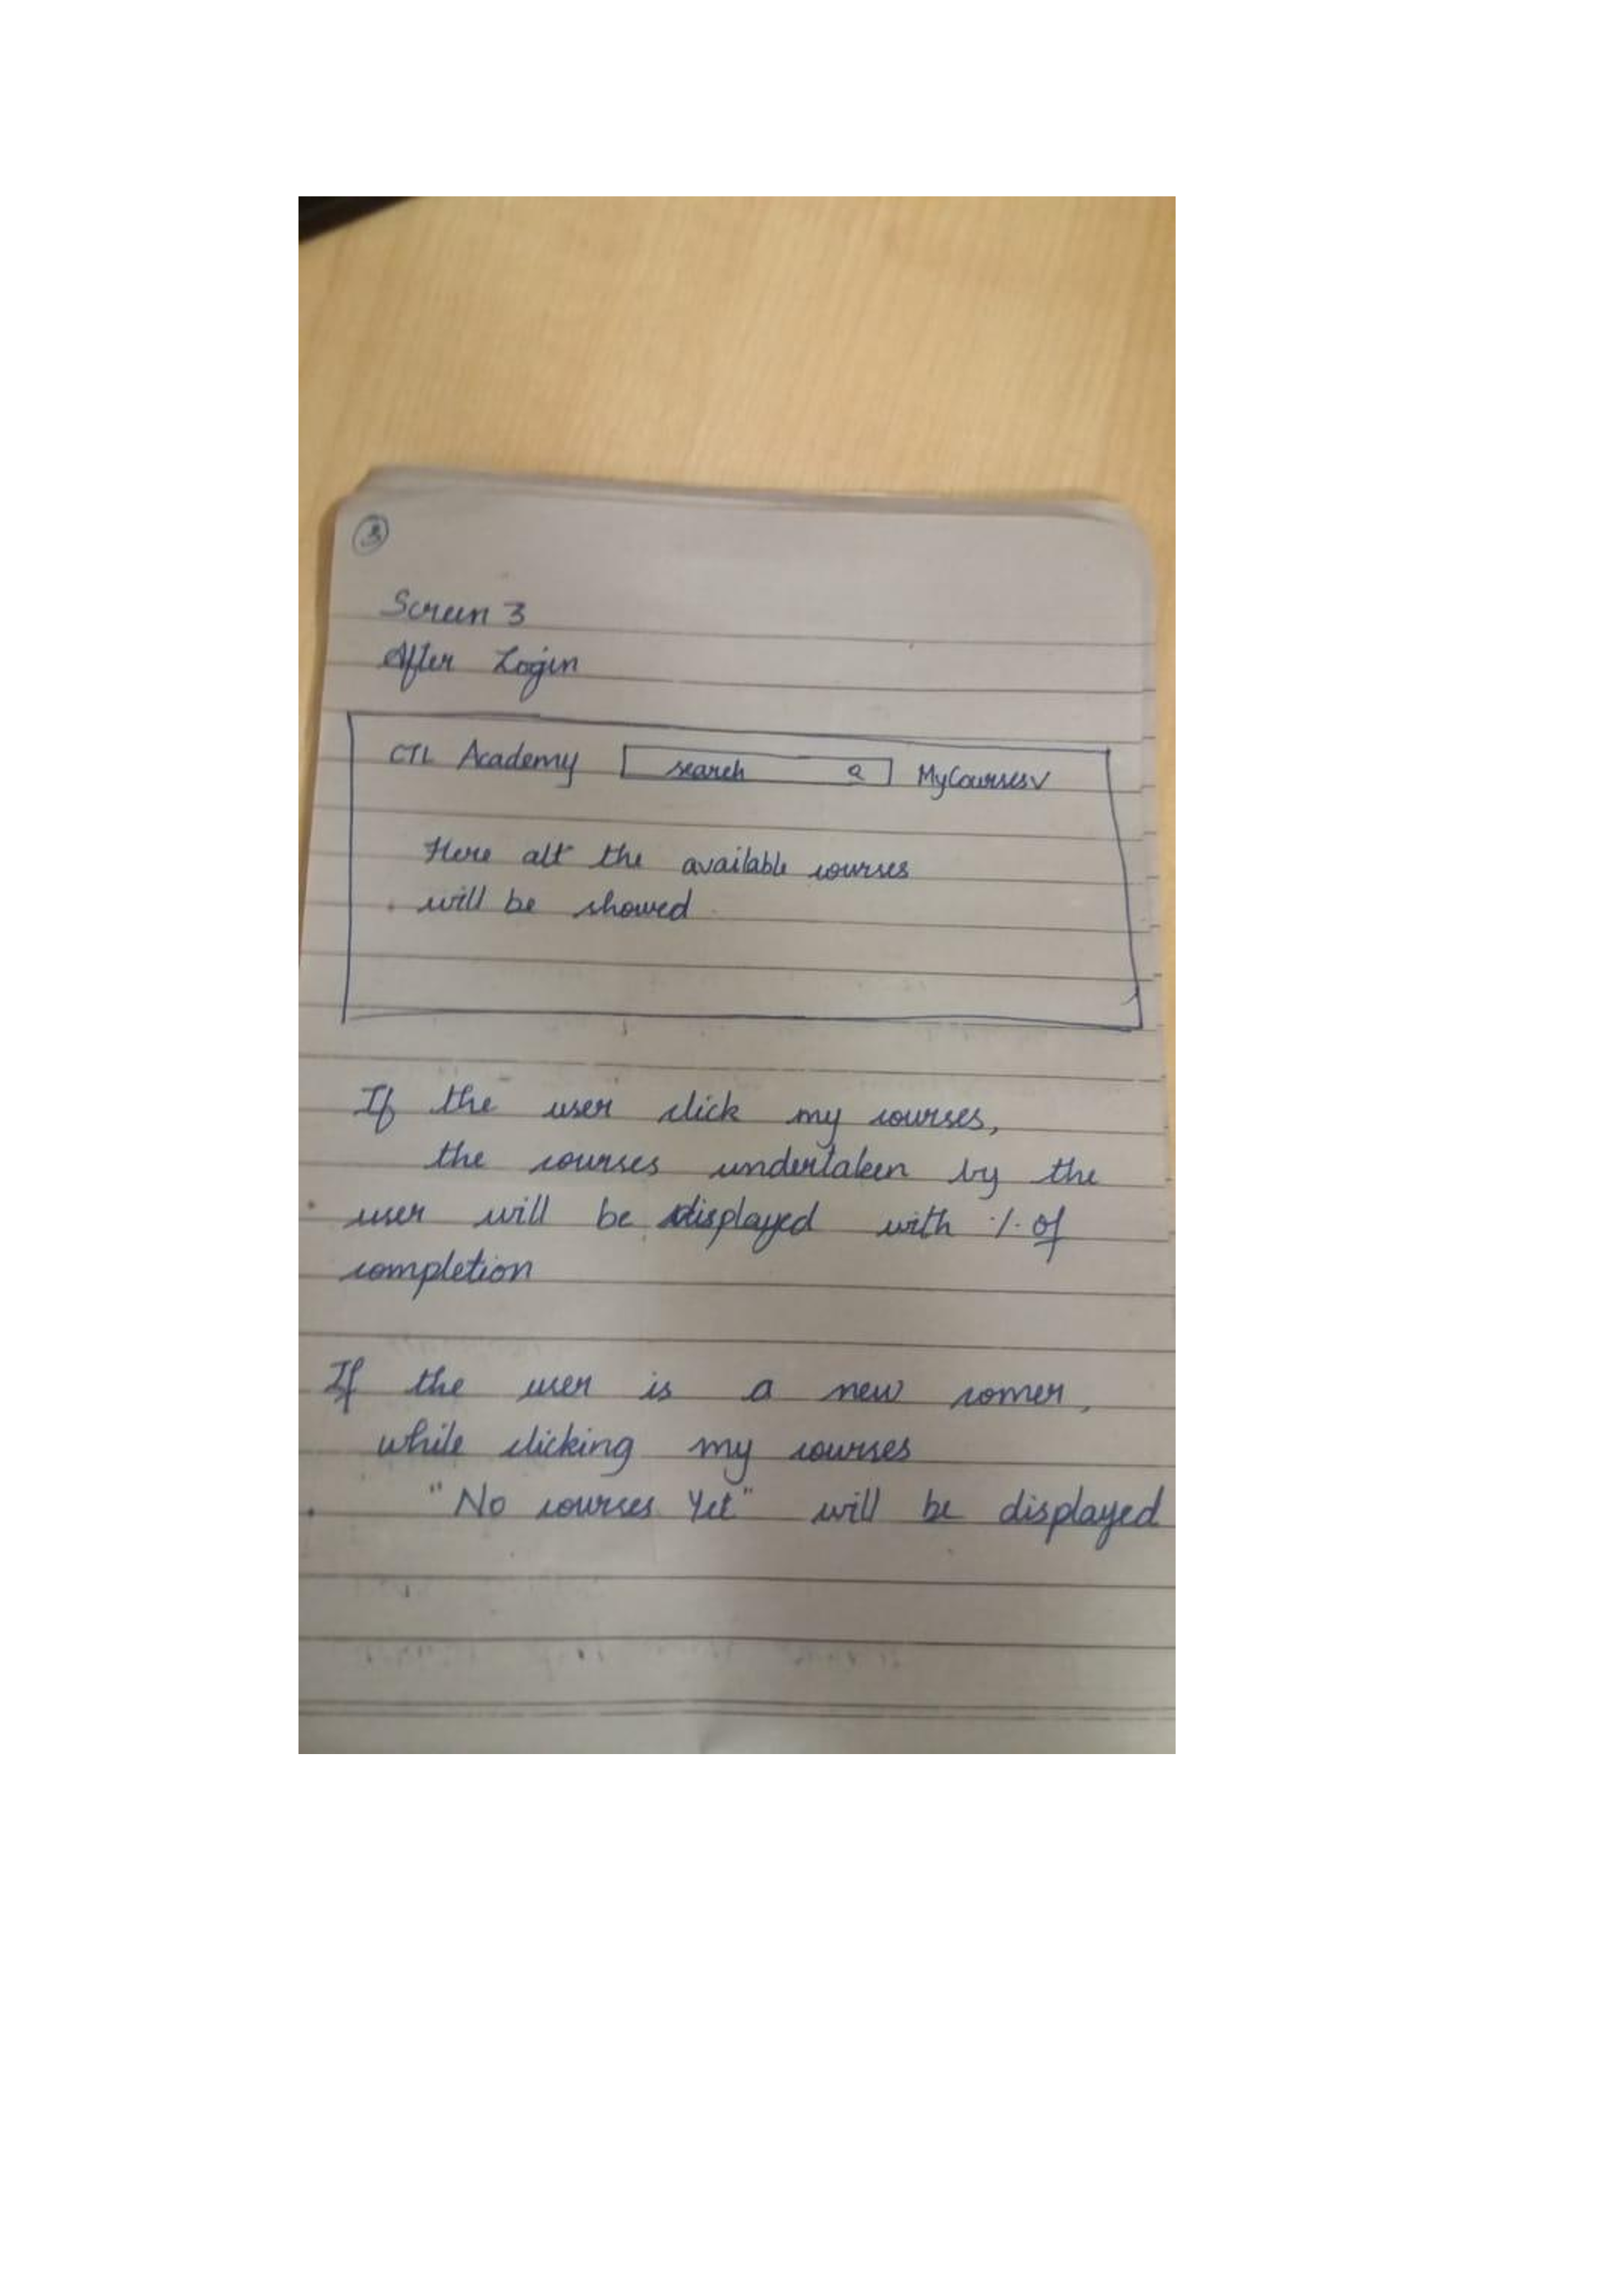 3
Screen 3
After Login
CTL Academy search MyCourses
Here all the available courses
will be showed
If the user click my courses,
the courses undertaken by the
user will be displayed with % of
completion
If the user is a new comer,
while clicking my courses
"No courses Yet" will be displayed